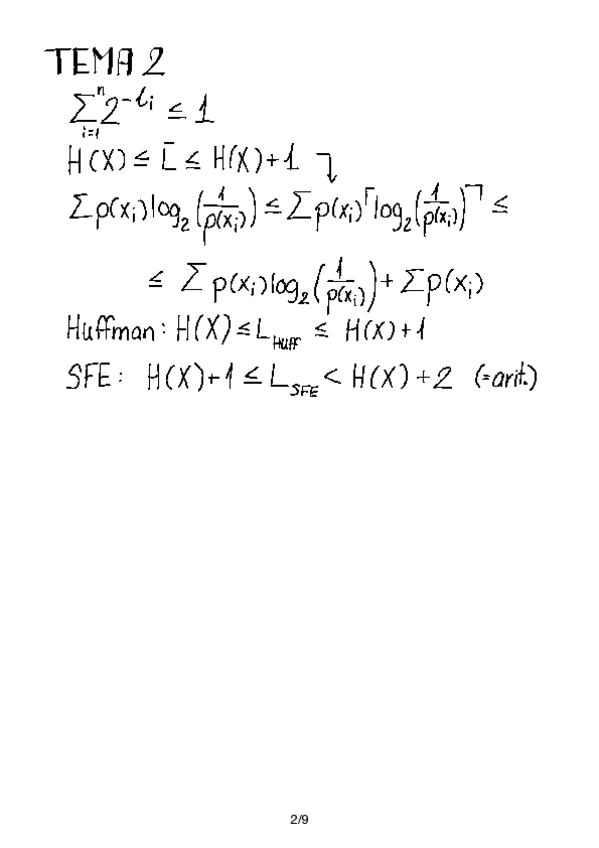 TEMA 2
∑_{i=1}^{n} 2^{-l_i} ≤ 1
H(X) ≤ L̄ ≤ H(X)+1 ↴
∑p(x_i)log_2(1/p(x_i)) ≤ ∑p(x_i)⌈log_2(1/p(x_i))⌉ ≤
≤ ∑p(x_i)log_2(1/p(x_i)) + ∑p(x_i)
Huffman: H(X) ≤ L_{Huff} ≤ H(X)+1
SFE: H(X)+1 ≤ L_{SFE} < H(X)+2 (=arit.)
2/9